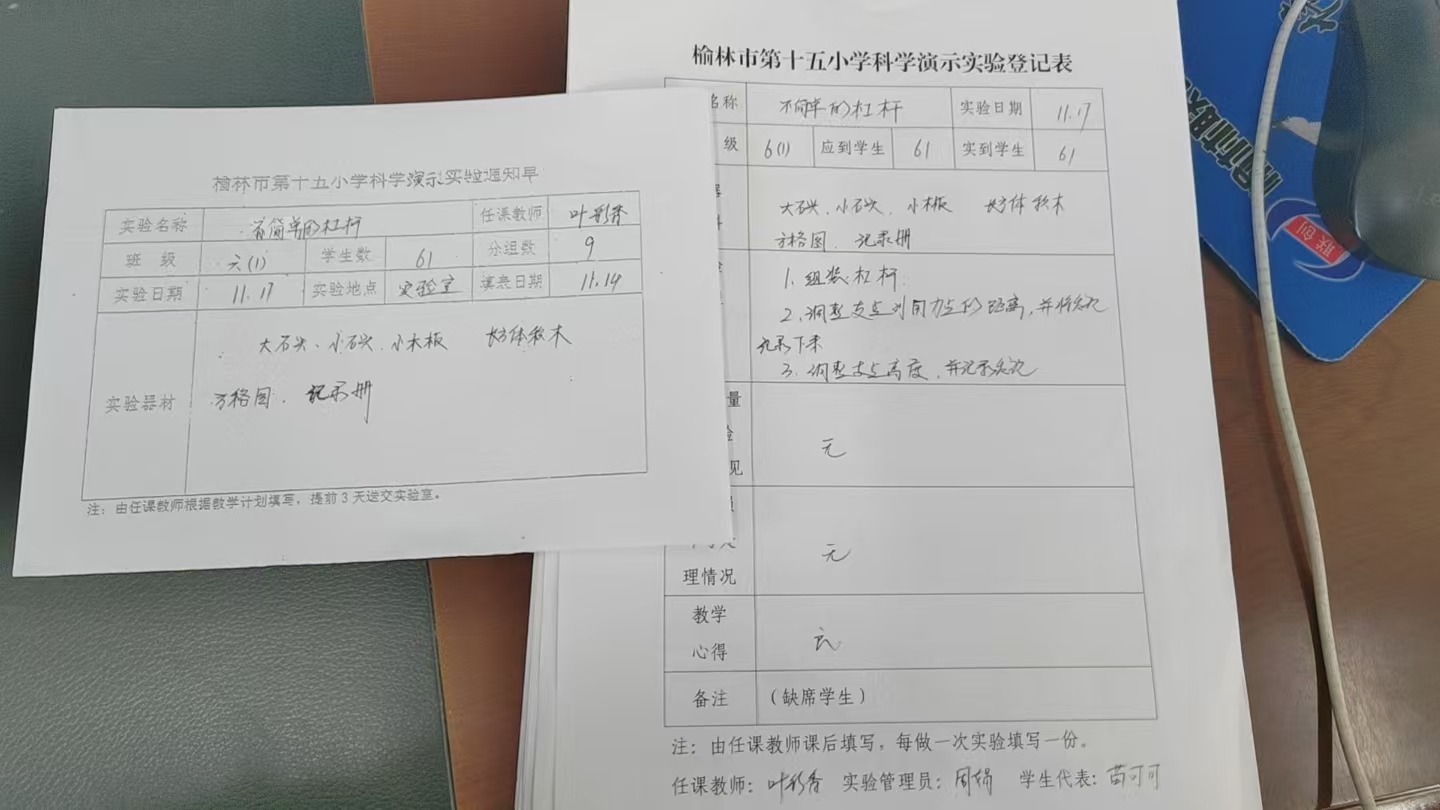 榆林市第十五小学科学演示实验通知单
实验名称 省简单的杠杆 任课教师 叶彩香
班 级 六(1) 学生数 61 分组数 9
实验日期 11.17 实验地点 实验室 填表日期 11.14
大石头、小石头、小木板 长方体积木
实验器材 方格图、记录册
注：由任课教师根据教学计划填写，提前3天送交实验室。
榆林市第十五小学科学演示实验登记表
名称 不简单的杠杆 实验日期 11.17
级 6(1) 应到学生 61 实到学生 61
大石头、小石头、小木板 长方体积木
方格图、记录册
1. 组装杠杆.
2. 调整支点到用力点的距离，并将情况
记录下来
3. 调整支点高度，并记录情况
量
无
见
无
理情况
教学
心得
无
备注 （缺席学生）
注：由任课教师课后填写，每做一次实验填写一份。
任课教师：叶彩香 实验管理员：周娟 学生代表：苗可可
联创